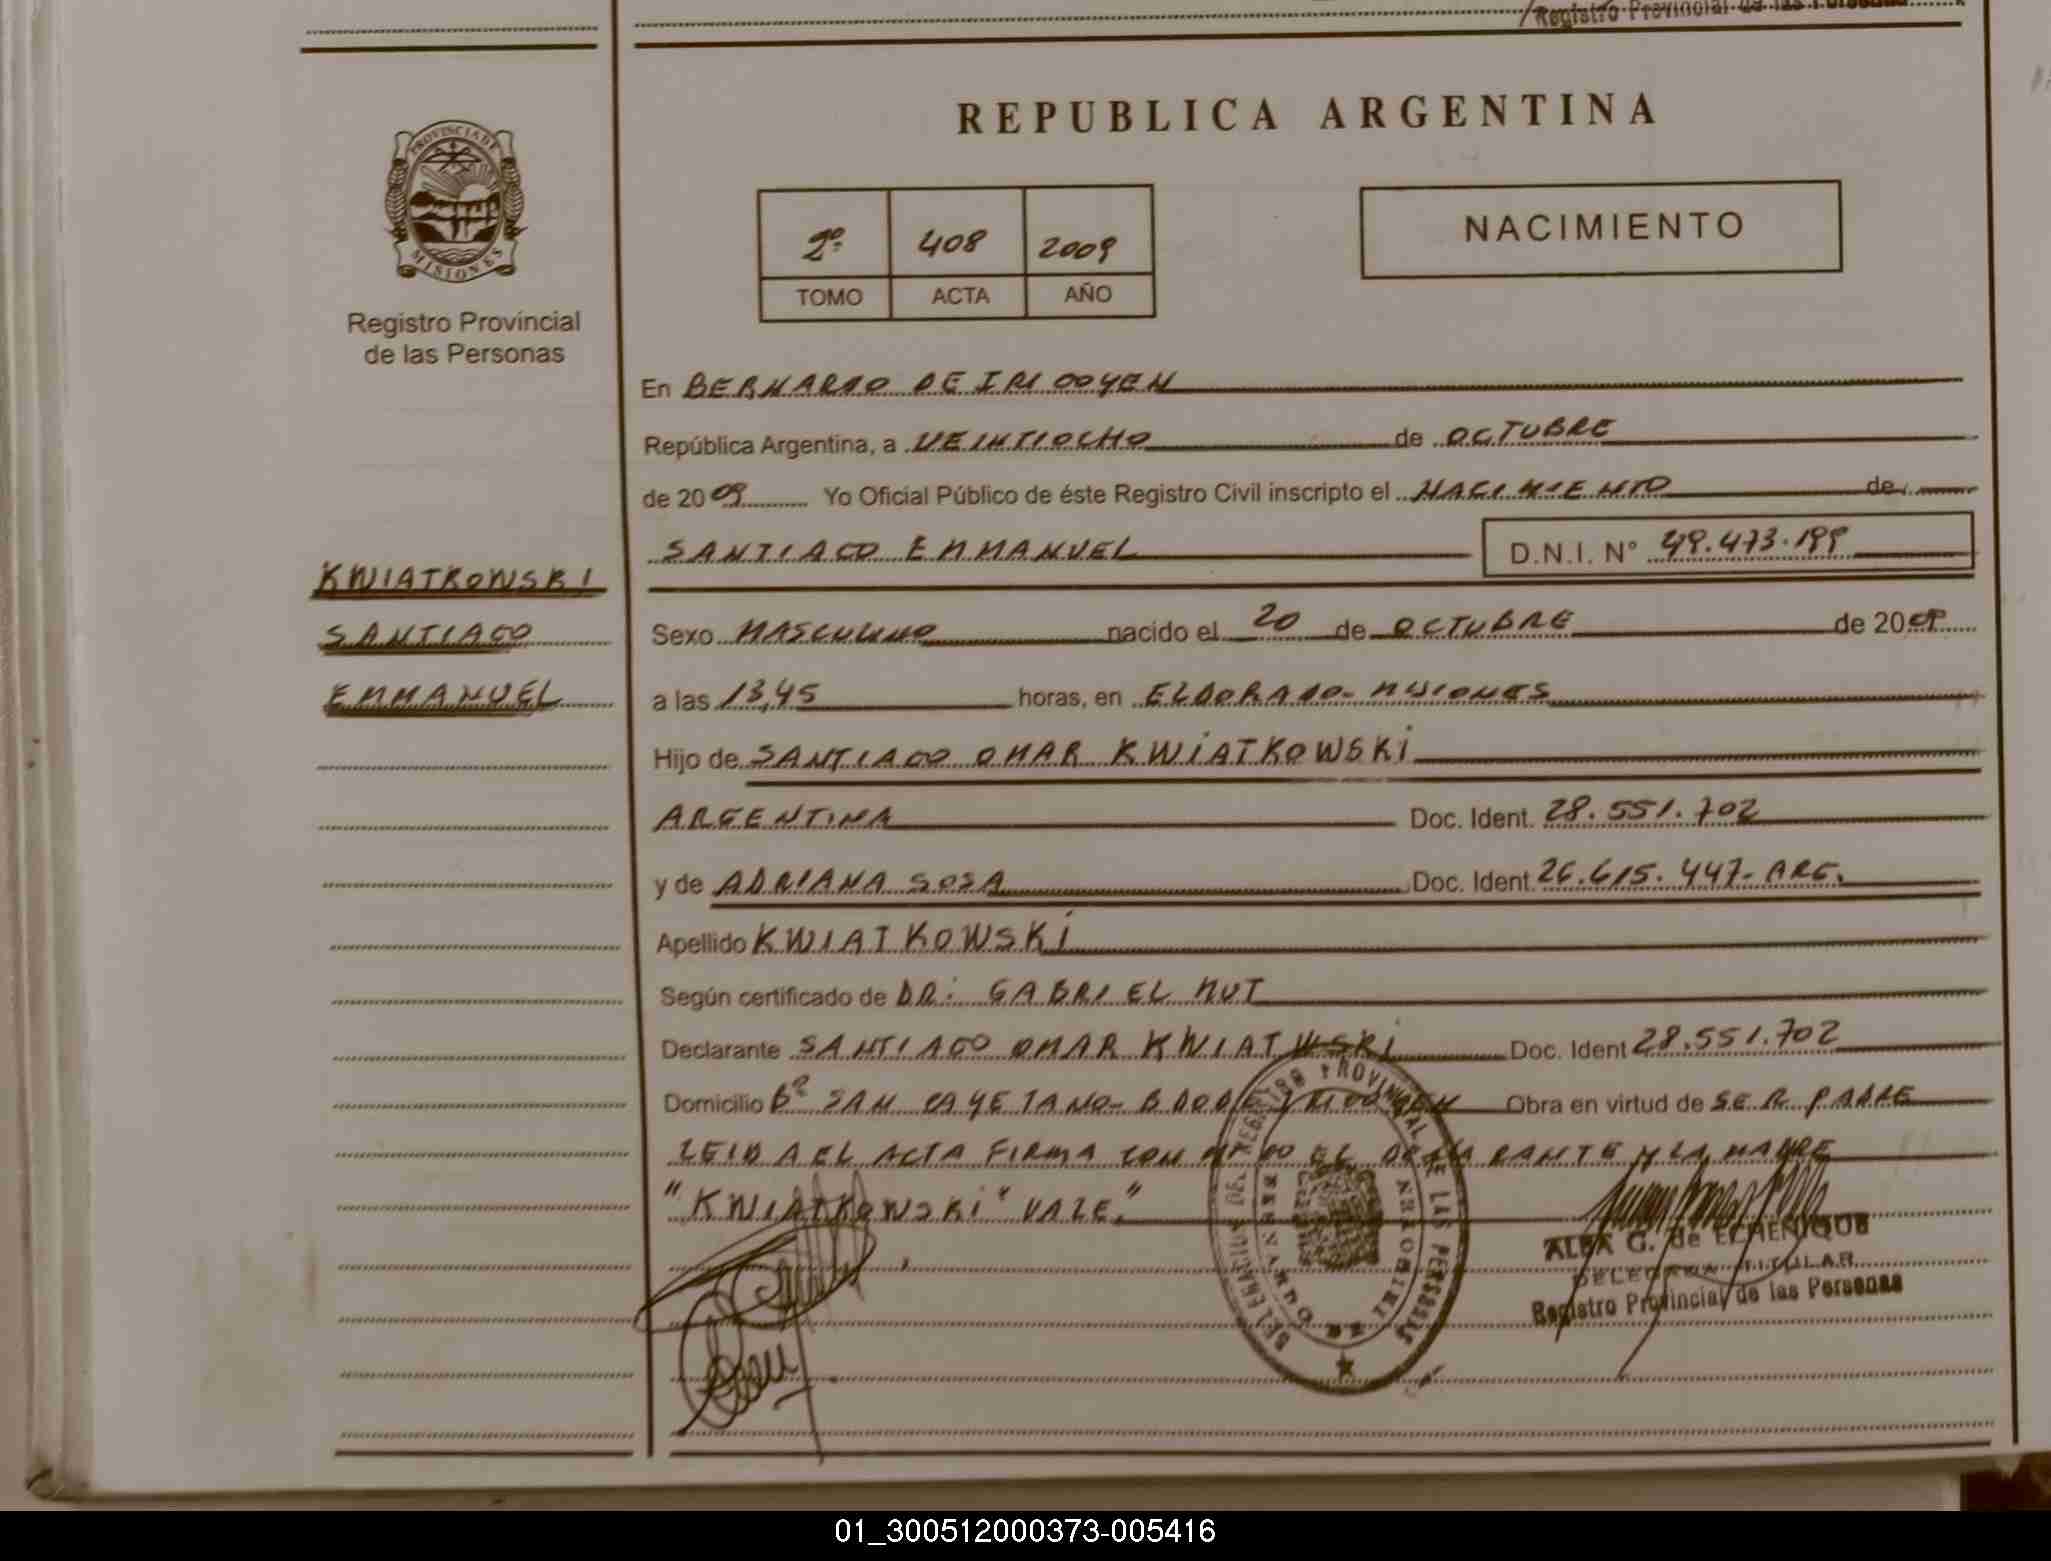 Registro Provincial de las Personas
REPUBLICA ARGENTINA
PROVINCIA DE
MISIONES
Registro Provincial
de las Personas
2º 408 2009
TOMO ACTA AÑO
NACIMIENTO
En BERNARDO DE IRIGOYEN
República Argentina, a VEINTIOCHO de OCTUBRE
de 2009 Yo Oficial Público de éste Registro Civil inscripto el NACIMIENTO de
SANTIAGO EMMANUEL D.N.I. Nº 49.473.199
KWIATKOWSKI
SANTIAGO
EMMANUEL
Sexo MASCULINO nacido el 20 de OCTUBRE de 2009
a las 13,45 horas, en ELDORADO- MISIONES
Hijo de SANTIAGO OMAR KWIATKOWSKI
ARGENTINA Doc. Ident. 28.551.702
y de ADRIANA SOSA Doc. Ident. 26.615.447- ARG.
Apellido KWIATKOWSKI
Según certificado de DR: GABRIEL
Declarante SANTIAGO OMAR KWIATWSKI Doc. Ident 28.551.702
Domicilio Bº SAN CAYETANO- BDO DE IRIGOYEN Obra en virtud de SER PADRE
LEIDA EL ACTA FIRMA CONMIGO EL DECLARANTE Y LA MADRE
"KWIATKOWSKI" VALE."
DELEGACION DEL REGISTRO PROVINCIAL DE LAS PERSONAS
BERNARDO DE IRIGOYEN
ALBA G. de ECHENIQUE
DELEGADA TITULAR
Registro Provincial de las Personas
01_300512000373-005416